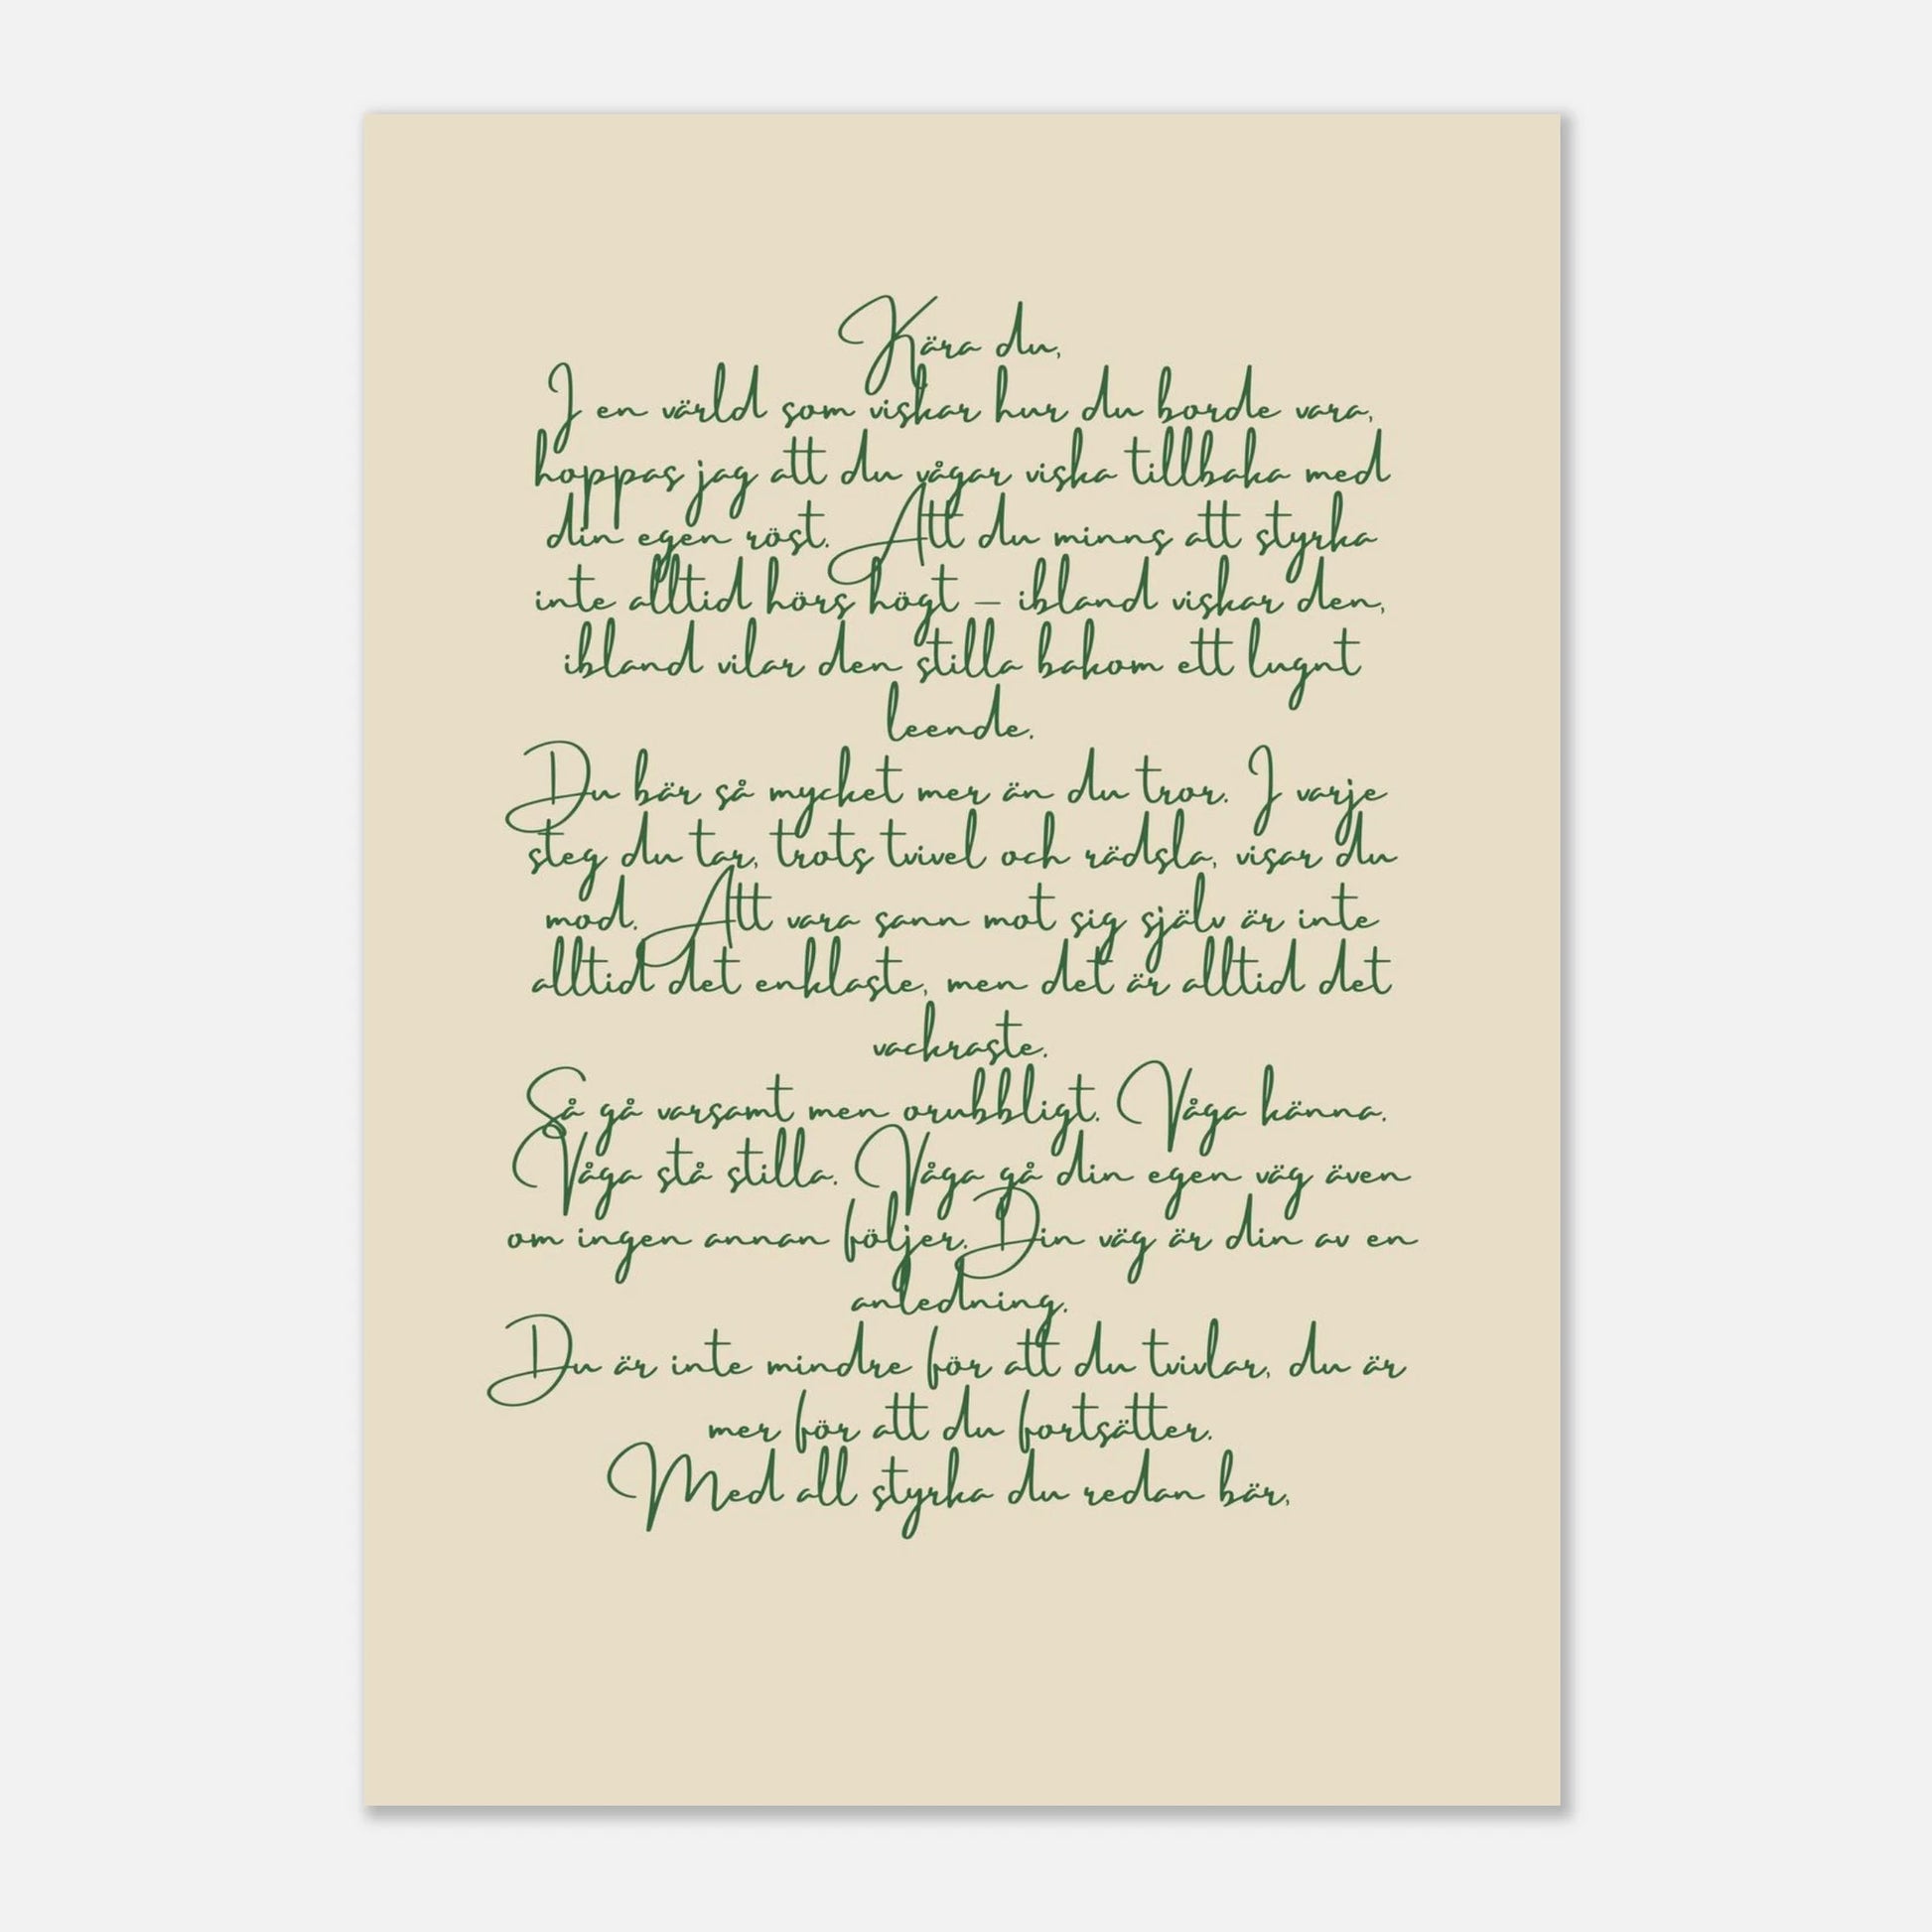 Kära du,
I en värld som viskar hur du borde vara,
hoppas jag att du vågar viska tillbaka med
din egen röst. Att du minns att styrka
inte alltid hörs högt – ibland viskar den,
ibland vilar den stilla bakom ett lugnt
leende.
Du bär så mycket mer än du tror. I varje
steg du tar, trots tvivel och rädsla, visar du
mod. Att vara sann mot sig själv är inte
alltid det enklaste, men det är alltid det
vackraste.
Så gå varsamt men orubbligt. Våga känna.
Våga stå stilla. Våga gå din egen väg även
om ingen annan följer. Din väg är din av en
anledning.
Du är inte mindre för att du tvivlar, du är
mer för att du fortsätter.
Med all styrka du redan bär,